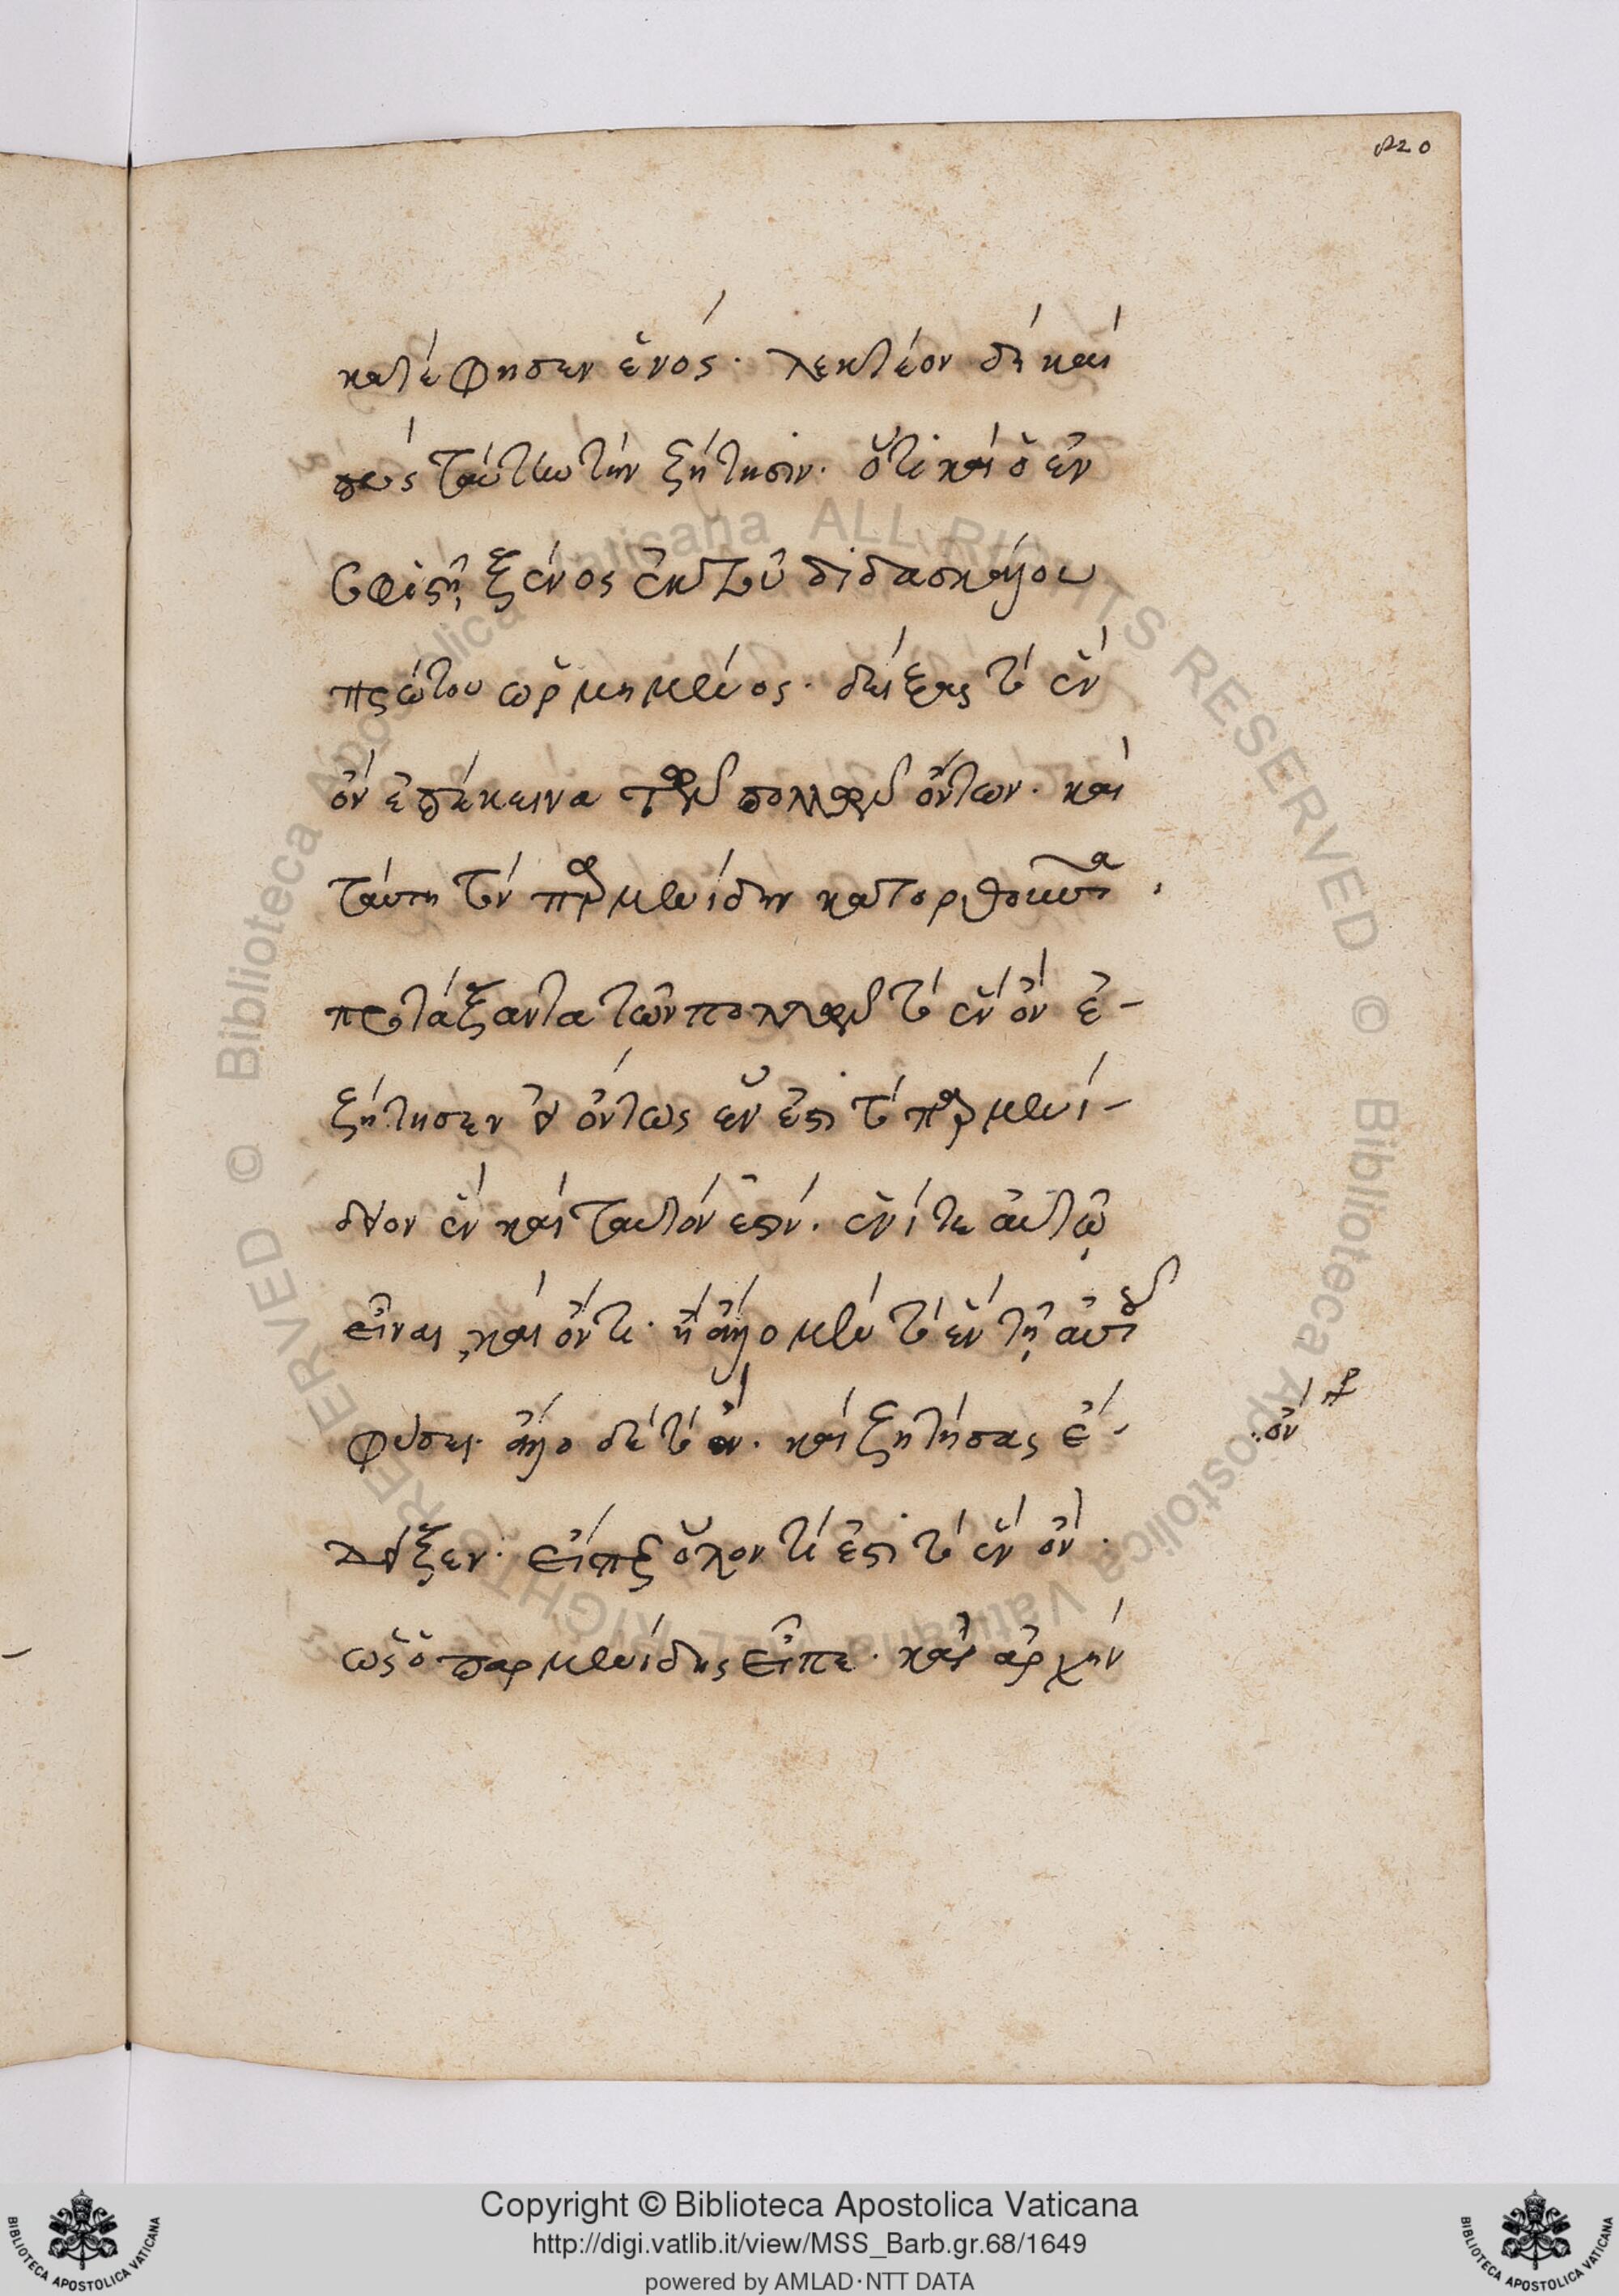 820
κατέφησεν ἑνός· λεκτέον δὴ καὶ
πρὸς ταύτην τὴν ζήτησιν· ὅτι καὶ ὁ ἐν
Σοφιστῇ ξένος ἐκ τοῦ διδασκάλου
πρώτου ὡρμημένος· δείξας τὸ ἓν
ὂν ἐπέκεινα τῶν πολλῶν ὄντων· καὶ
ταύτῃ τὸν παρμενίδην κατορθοῦντα,
προτάξαντα τῶν πολλῶν τὸ ἓν ὂν ἐ-
ζήτησεν εἰ ὄντως ἕν ἐστι τὸ παρμενί-
δειον ἓν καὶ ταυτόν ἐστιν· ἑνί τε αὐτῷ
εἶναι, καὶ ὄντι· ἢ ἄλλο μὲν τὸ ἓν τῇ αὐτοῦ
φύσει· ἄλλο δὲ τὸ ὂν· καὶ ζητήσας ἔ-
ὂν
δειξεν· εἴπερ ὅλον τί ἐστι τὸ ἓν ὂν·
ὡς ὁ παρμενίδης εἶπε· καὶ ἀρχὴν
Copyright © Biblioteca Apostolica Vaticana
http://digi.vatlib.it/view/MSS_Barb.gr.68/1649
powered by AMLAD·NTT DATA
BIBLIOTECA APOSTOLICA VATICANA
BIBLIOTECA APOSTOLICA VATICANA
© Biblioteca Apostolica Vaticana ALL RIGHTS RESERVED © Biblioteca Apostolica Vaticana ALL RIGHTS RESERVED